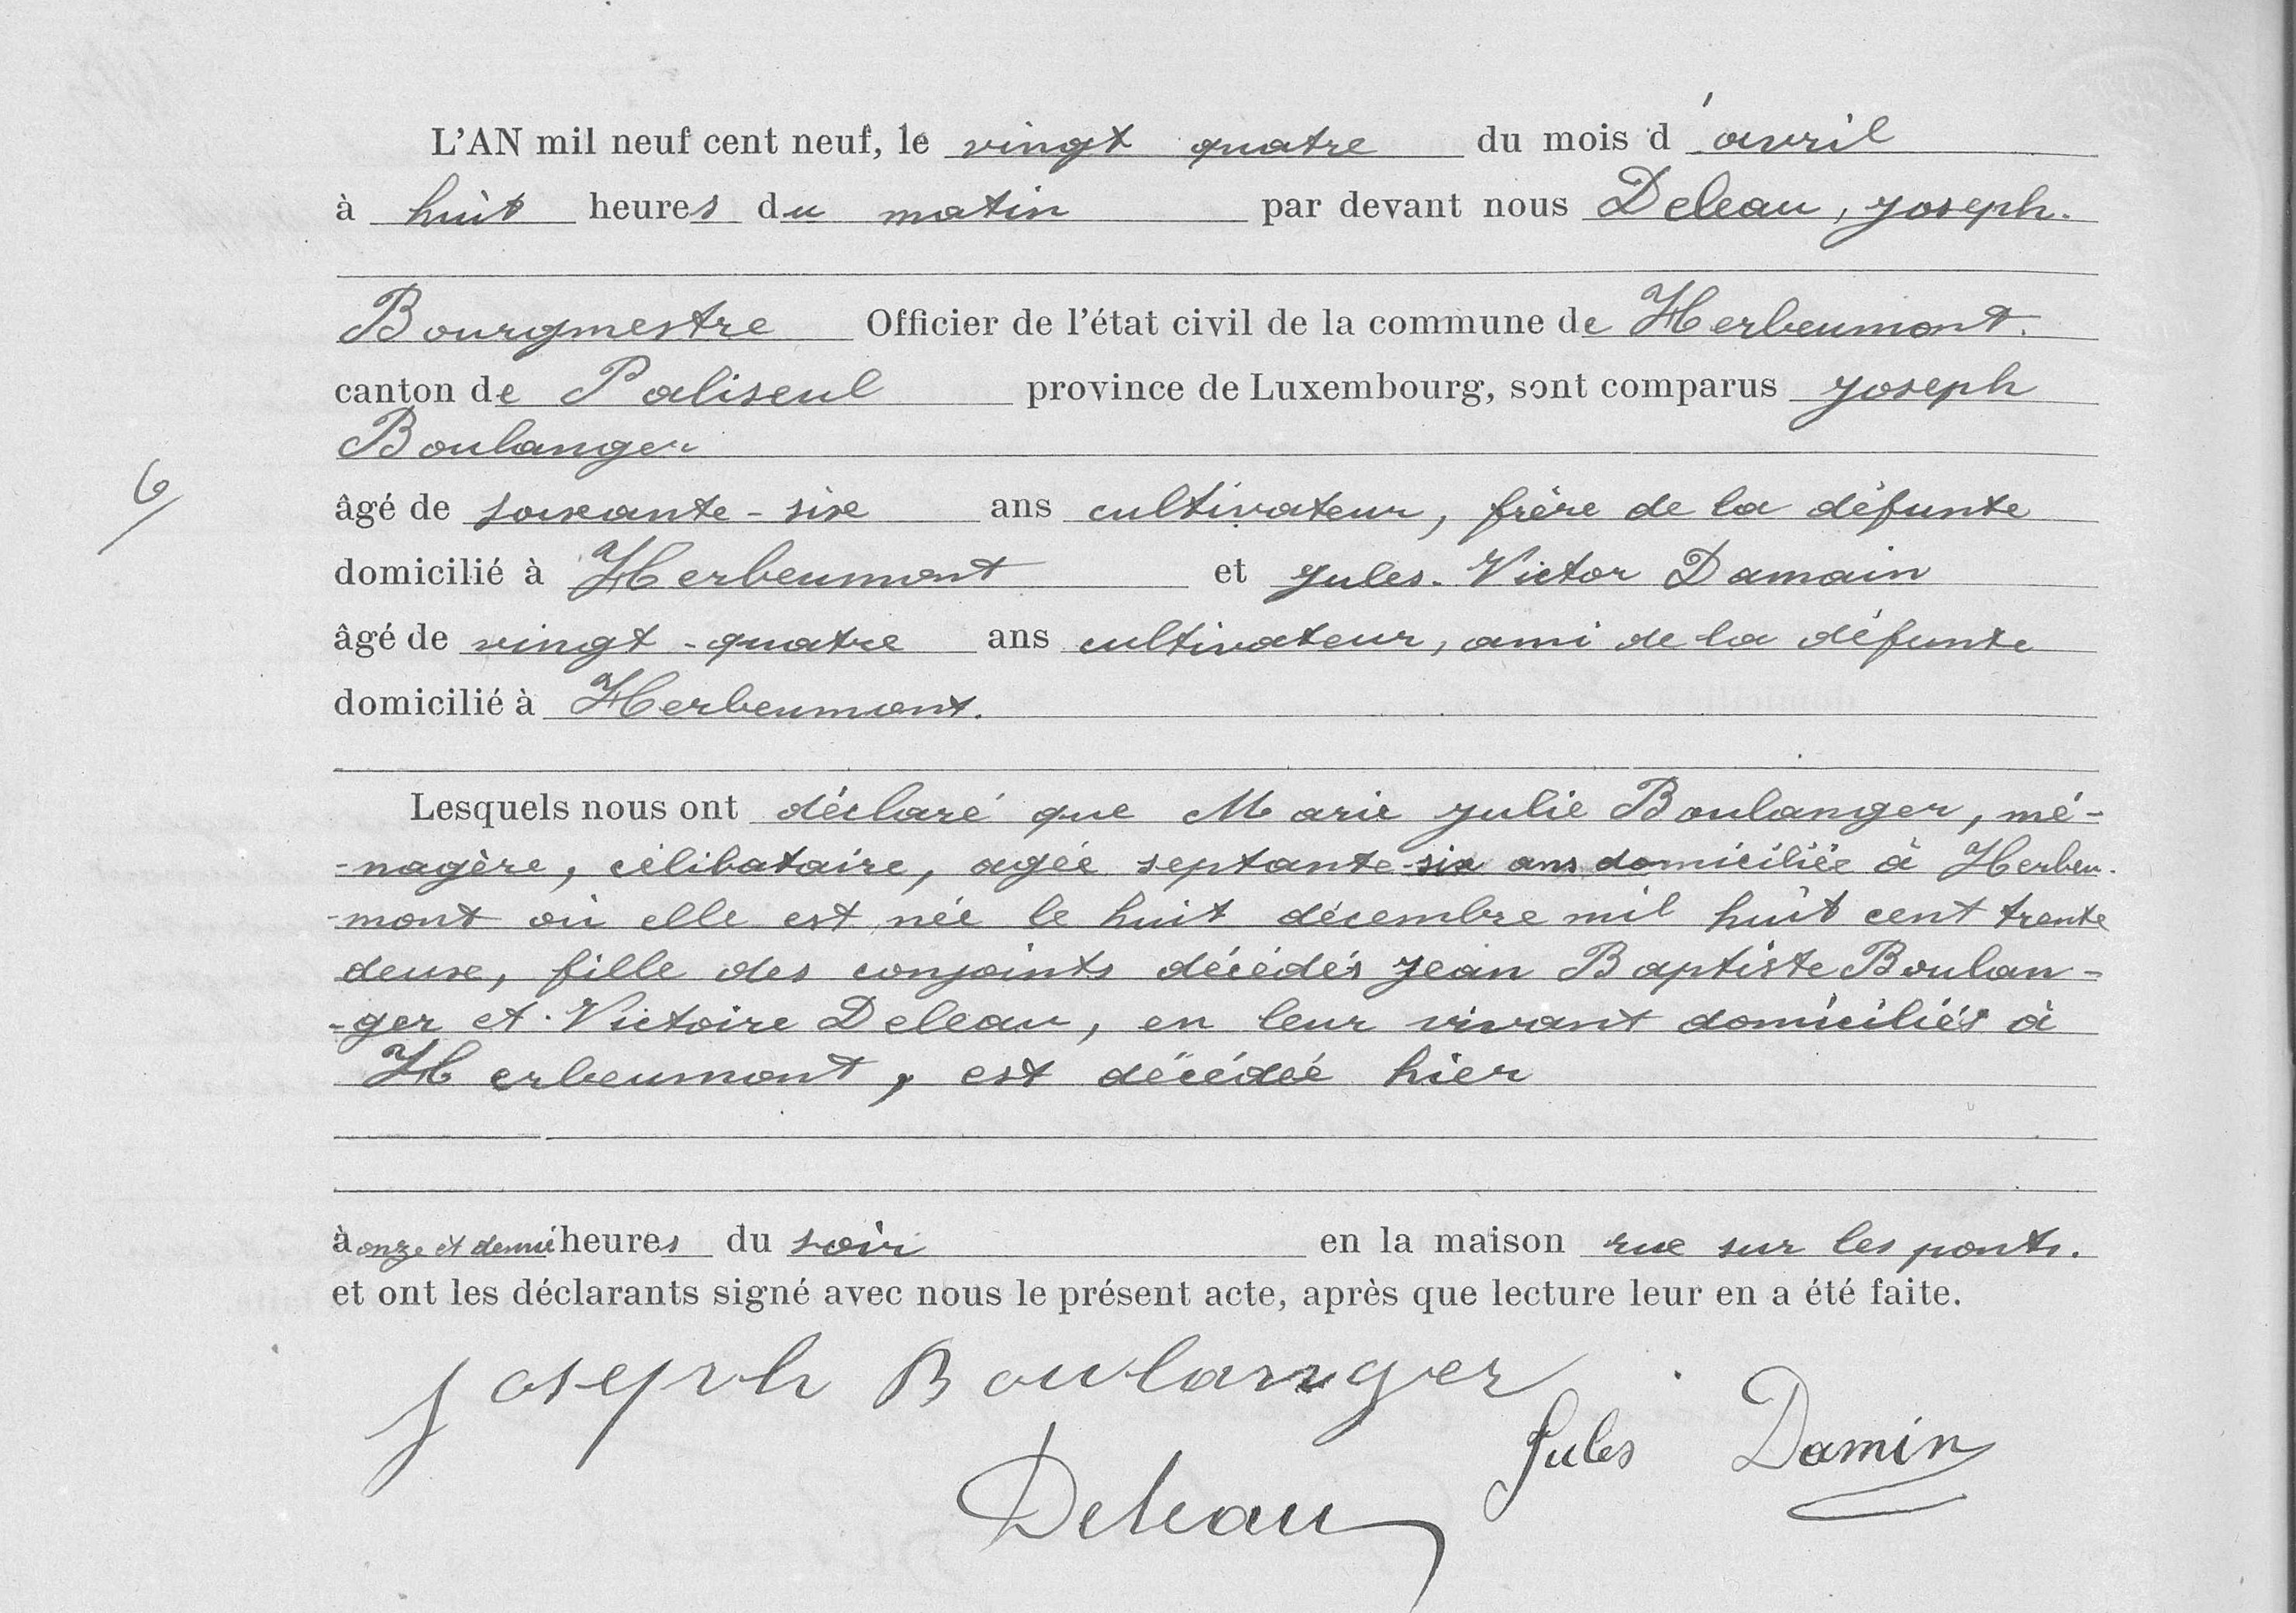 L'AN mil neuf cent neuf, le vingt quatre du mois d'avril
à huit heures du matin par devant nous Deleau, Joseph.
Bourgmestre Officier de l'état civil de la commune de Herbeumont.
canton de Paliseul province de Luxembourg, sont comparus Joseph
Boulanger
6/
âgé de soixante-six ans cultivateur, frère de la défunte
domicilié à Herbeumont et Jules-Victor Damain
âgé de vingt-quatre ans cultivateur, ami de la défunte
domicilié à Herbeumont.
Lesquels nous ont déclaré que Marie Julie Boulanger, mé-
-nagère, célibataire, agée septante-six ans domiciliée à Herbeu-
-mont où elle est née le huit décembre mil huit cent trente
deux, fille des conjoints décédés Jean Baptiste Boulan-
-ger et Victoire Deleau, en leur vivant domiciliés à
Herbeumont, est décédée hier
à onze et demi heures du soir en la maison rue sur les ponts.
et ont les déclarants signé avec nous le présent acte, après que lecture leur en a été faite.
Joseph Boulanger
Jules Damin
Deleau